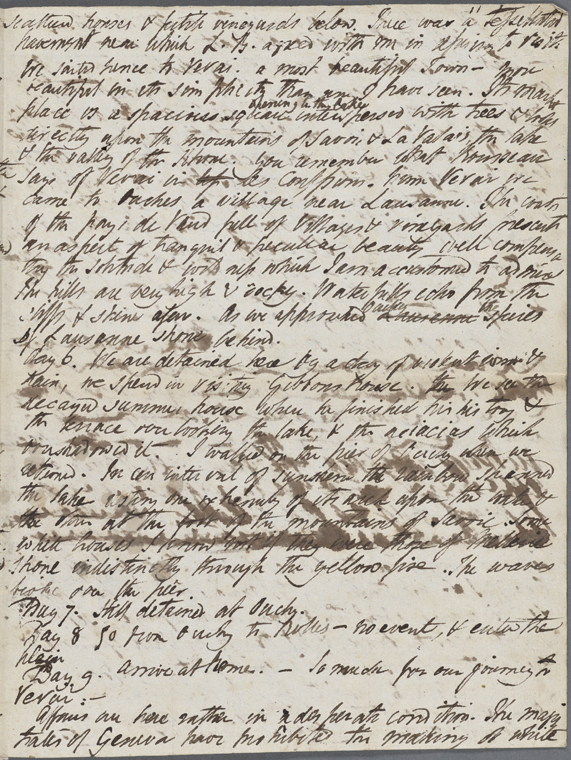 scattered houses & petite vineyards below. There was a tessellated
pavement near which L. B. agreed with me in
We sailed hence to Vevai. a most beautiful Town — more
beautiful in its simplicity than any I have seen. Its market
opening to the lake
place is a spacious square interspersed with trees & looks
directly upon the mountains of Savoi & La Valais, the lake
& the valley of the Rhone. You remember what Rousseau
says of Vevai in his Confessions. From Vevai we
came to Ouchea a village near Lausanne. The coasts
of the pays de Vaud full of villages & vineyards present
an aspect of tranquil & peculiar beauty well compensa
ting the solitude & wildness which I am accustomed to admire
The hills are very high & rocky. Waterfalls echo from the
cliffs & shine afar. As we approached Lausanne the spires
of Lausanne shone behind.
Day 6. We are detained here by a day of violent wind &
rain, we spend in visiting Gibbons House. We see the
decayed summer house where he finished his history &
the terrace overlooking the lake & the acacias which
overshadowed it. I walked on the pier of Ouchy when we
returned. In an interval of sunshine the rainbow spanned
the lake
the town at the foot of the mountains of Savoie some
white houses
shone indistinctly through the yellow fire. The waves
broke over the pier
Day 7. still detained at Ouchy.
Day 8 go from Ouchy to Rolles — no event, & enter the
plain
Day 9. arrive at home. — So much for our journey to
Vevai —
Affairs are here rather in a desperate condition. The magis
trates of Geneva have prohibited the making of white